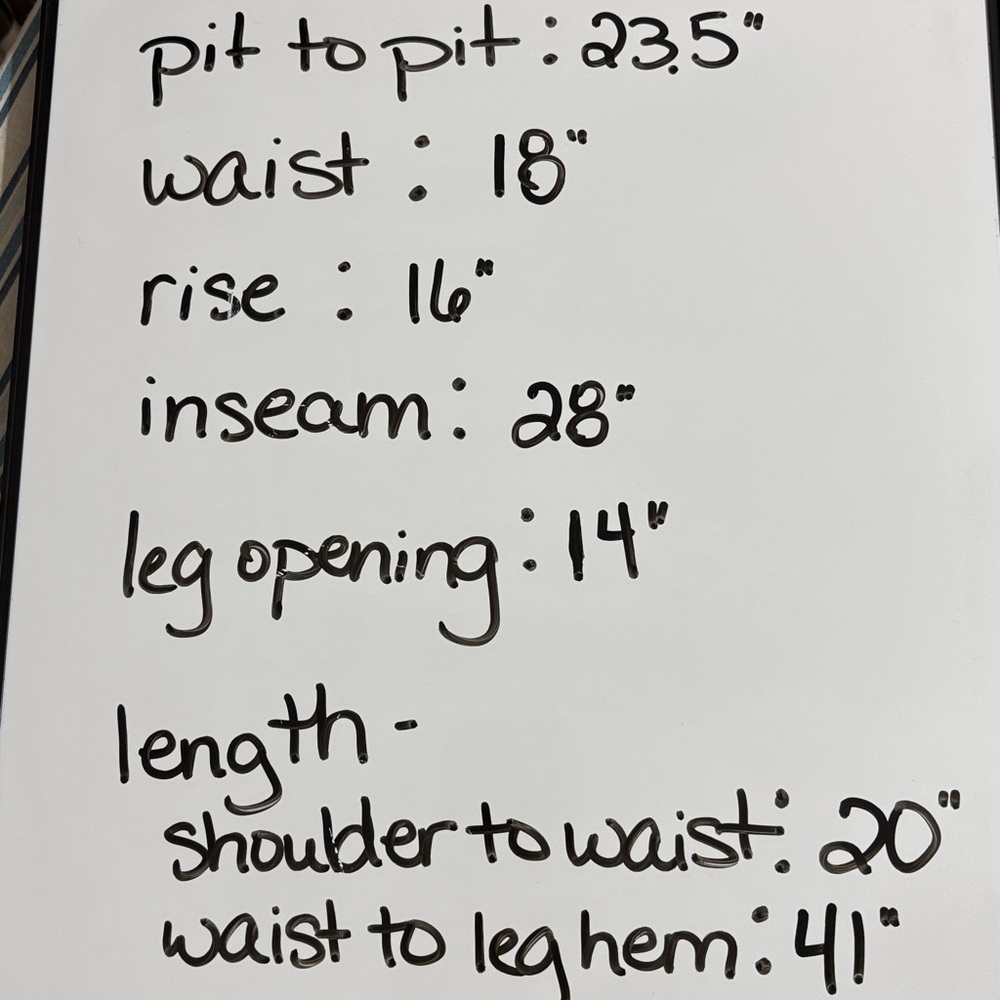 pit to pit : 23.5"
waist : 18"
rise : 16"
inseam : 28"
leg opening : 14"
length -
shoulder to waist : 20"
waist to leg hem : 41"